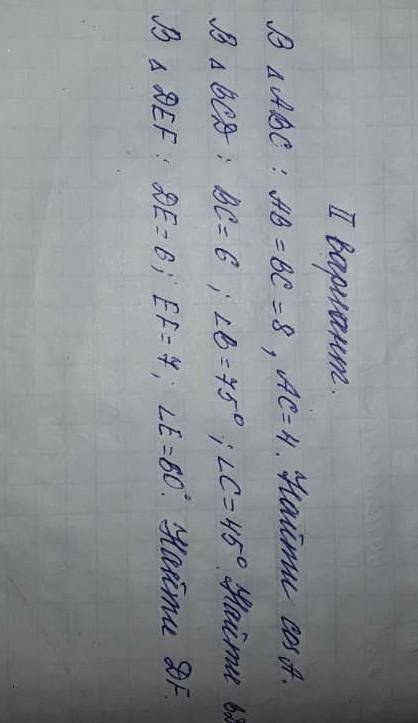 II вариант.
В △ ABC : AB = BC = 8 , AC = 4. Найти cos A.
В △ BCD : BC = 6 ; ∠B = 75° ; ∠C = 45°. Найти BD
В △ DEF : DE = 6 ; EF = 7 ; ∠E = 60°. Найти DF.